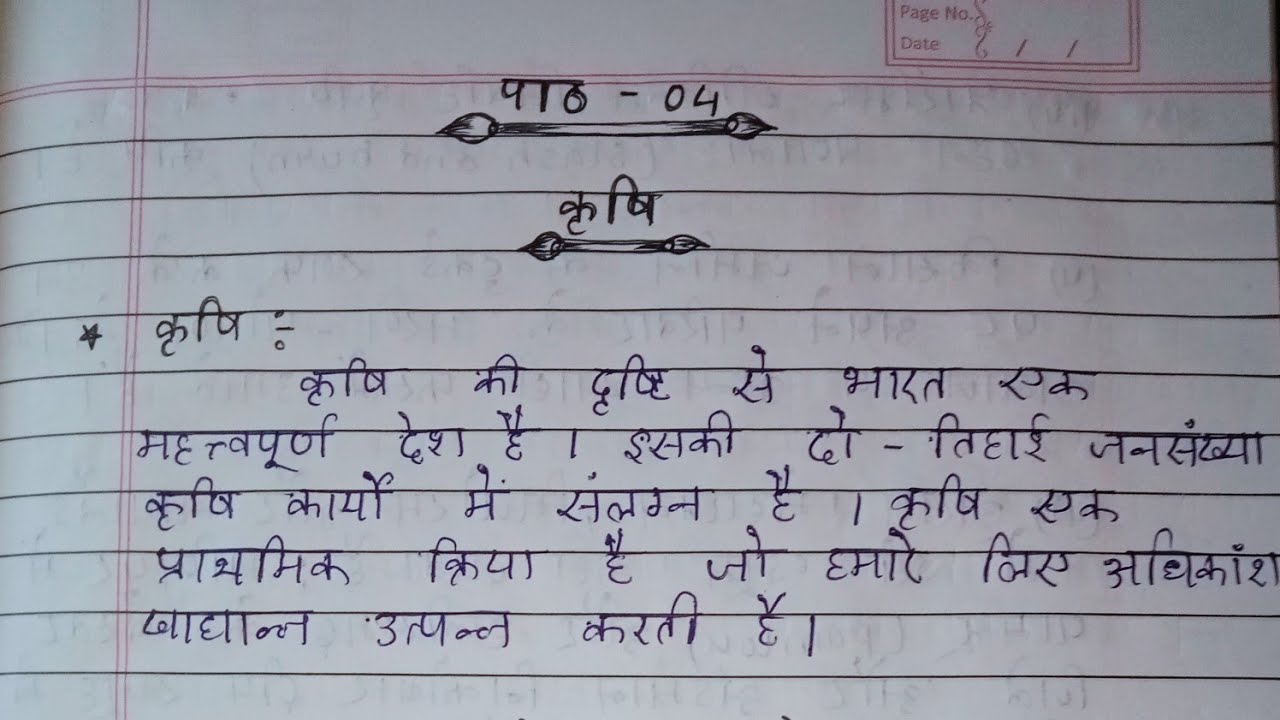 Page No.
Date / /
पाठ - 04
कृषि
* कृषि :-
कृषि की दृष्टि से भारत एक
महत्त्वपूर्ण देश है । इसकी दो - तिहाई जनसंख्या
कृषि कार्यों में संलग्न है । कृषि एक
प्राथमिक क्रिया है जो हमारे लिए अधिकांश
खाद्यान्न उत्पन्न करती है ।